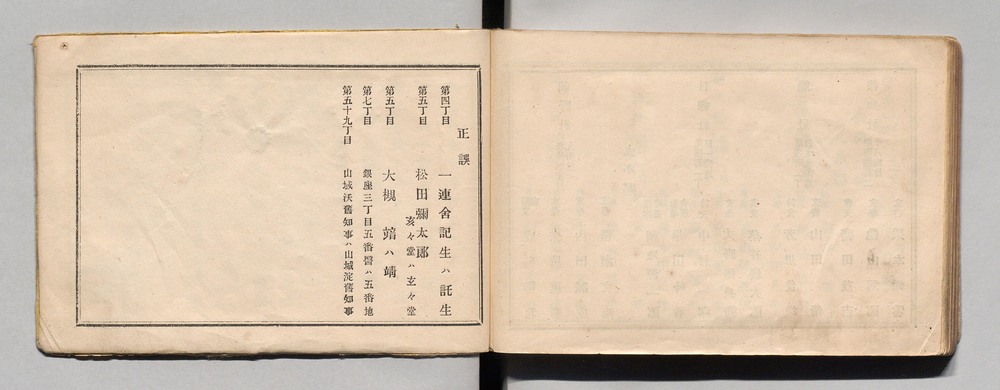 正誤
第四丁目 一連舍記生ハ託生
第五丁目 松田彌太郎
亥々堂ハ玄々堂
第五丁目 大槻 ハ靖
第七丁目 銀座三丁目五番 ハ五番地
第五十九丁目 山城沃舊知事ハ山城淀舊知事